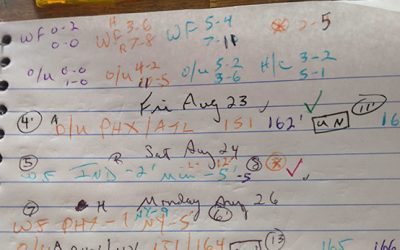 WF 0-2 H 3-6 WF 5-4 2-5
0-0 WF R 7-8 7-11
O/U 0-0 O/U 4-2 O/U 5-2 H/C 3-2
1-0 11-5 3-6 5-1
Fri Aug 23 ✓
4 A O/U PHX/ATL 151 162' UN 11' 16
R Sat Aug 24
5 WF IND -2' Min -5' -5 8 ✓
7 H Monday Aug 26
WF PHX -1' NY -9 NY -5' 6'
O/U 151/164 13 165 166